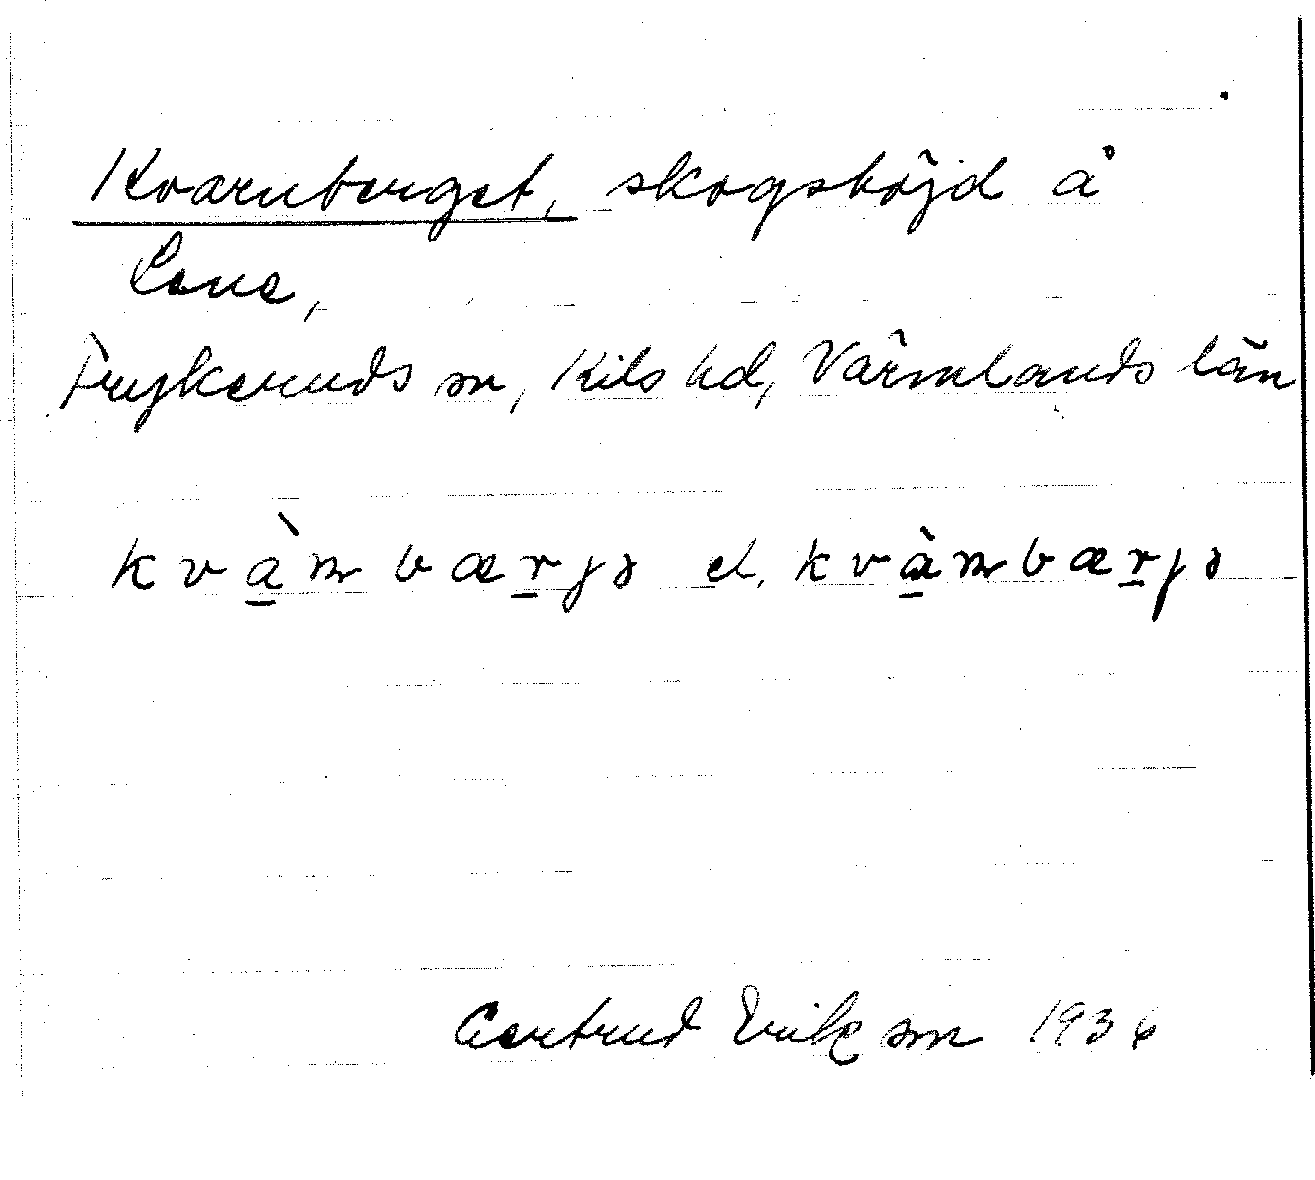 Kvarnberget, skogshöjd å
Lene,
Frykeruds sn, Kils hd, Värmlands län
kvàm bærjə el. kvàmbærjə
Gertrud Eriksson 1936